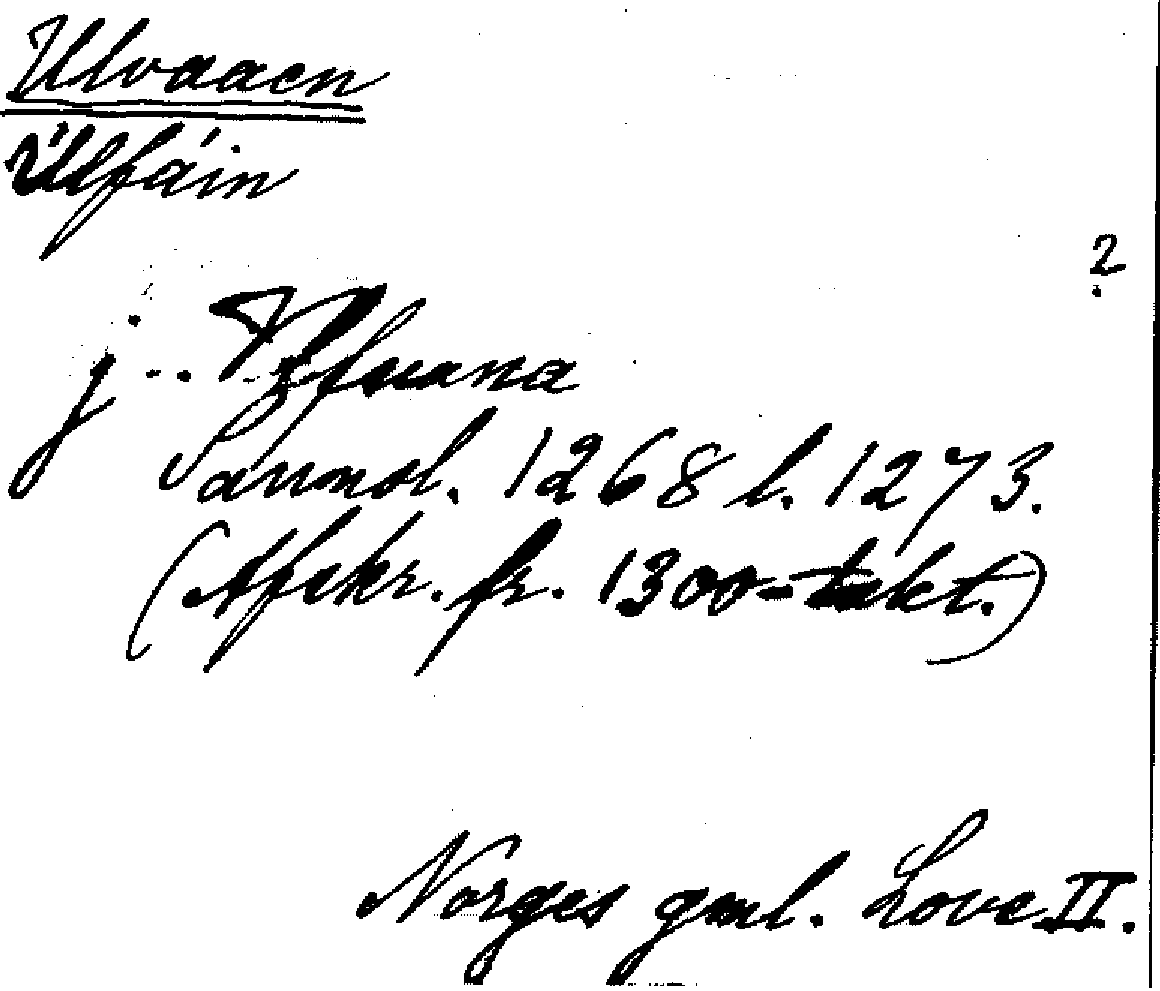 Ulvaaen
Úlfáin
?
j ... Vlfuana
Sannsol. 1268 l. 1273.
(Afskr. fr. 1300-takt.)
Norges gml. Love II.